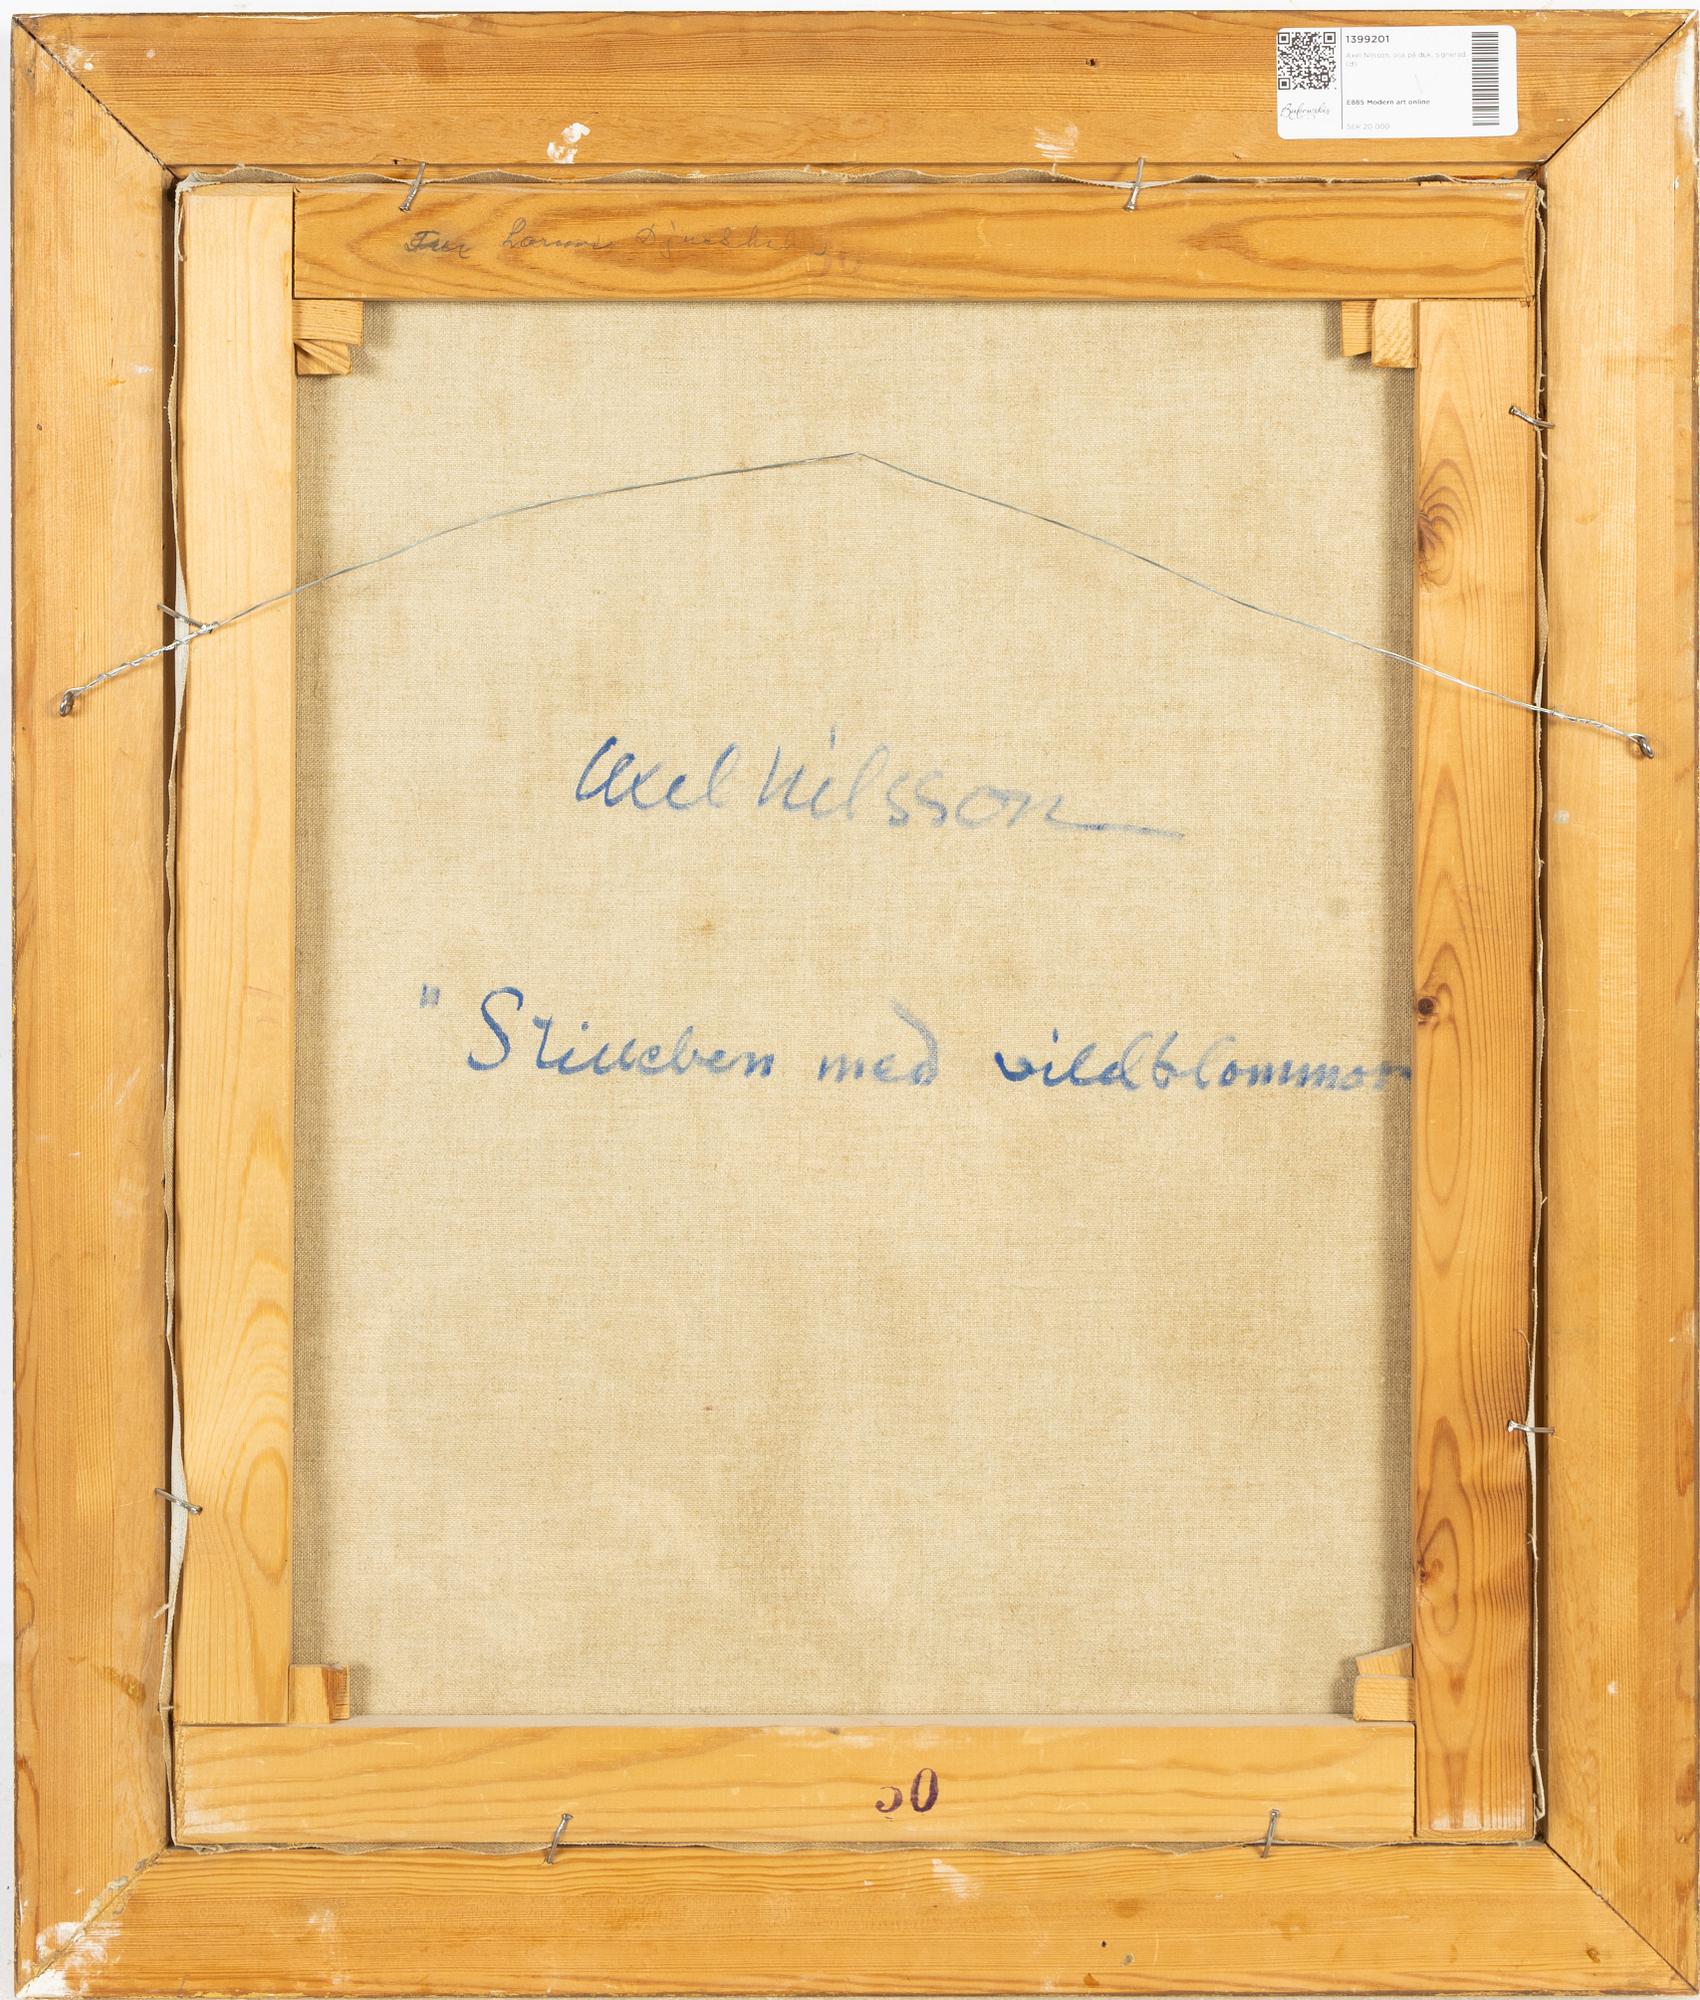 1399201
Axel Nilsson, olja på duk, signerad
(d)
Bukowskis
E885 Modern art online
SEK 20 000
50
Axel Nilsson
" Stilleben med vildblommor
50